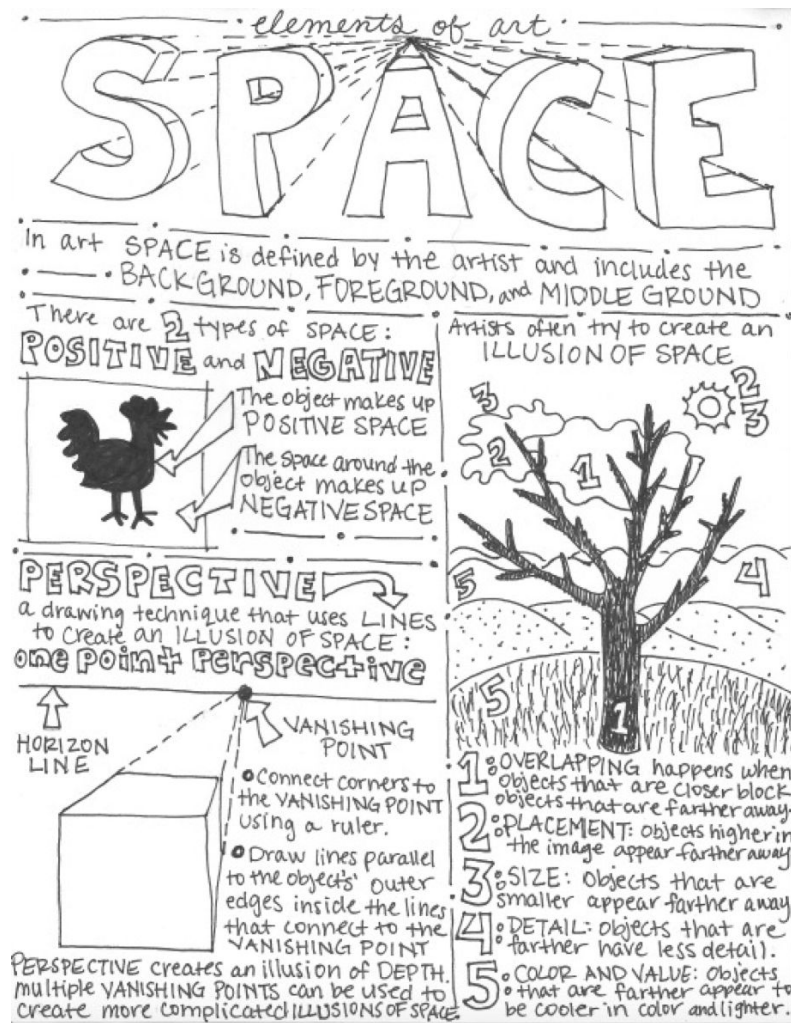 elements of art
SPACE
In art SPACE is defined by the artist and includes the
BACKGROUND, FOREGROUND, and MIDDLE GROUND
There are 2 types of SPACE:
POSITIVE and NEGATIVE
The object makes up
POSITIVE SPACE
The space around the
object makes up
NEGATIVE SPACE
PERSPECTIVE
a drawing technique that uses LINES
to create an ILLUSION OF SPACE:
one point perspective
HORIZON
LINE
VANISHING
POINT
Connect corners to
the VANISHING POINT
using a ruler.
Draw lines parallel
to the objects' outer
edges inside the lines
that connect to the
VANISHING POINT
PERSPECTIVE creates an illusion of DEPTH.
multiple VANISHING POINTS can be used to
create more complicated ILLUSIONS OF SPACE
Artists often try to create an
ILLUSION OF SPACE
3
2
1
2
3
5
4
5
1
1: OVERLAPPING happens when
objects that are closer block
objects that are farther away.
2: PLACEMENT: objects higher in
the image appear farther away
3: SIZE: Objects that are
smaller appear farther away
4: DETAIL: objects that are
farther have less detail.
5: COLOR AND VALUE: Objects
that are farther appear to
be cooler in color and lighter.